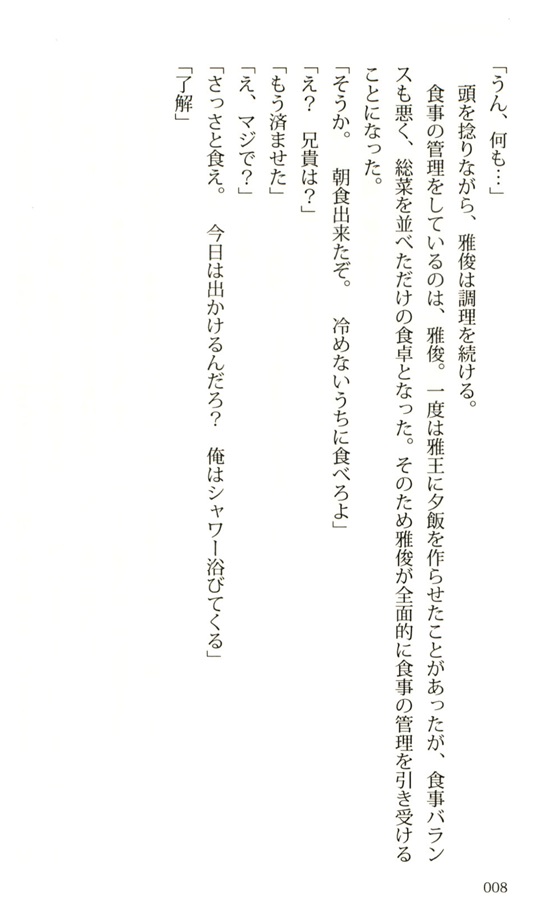 「うん、何も…」
　頭を捻りながら、雅俊は調理を続ける。
　食事の管理をしているのは、雅俊。一度は雅王に夕飯を作らせたことがあったが、食事バラン
スも悪く、総菜を並べただけの食卓となった。そのため雅俊が全面的に食事の管理を引き受ける
ことになった。
「そうか。　朝食出来たぞ。　冷めないうちに食べろよ」
「え？　兄貴は？」
「もう済ませた」
「え、マジで？」
「さっさと食え。　今日は出かけるんだろ？　俺はシャワー浴びてくる」
「了解」
008